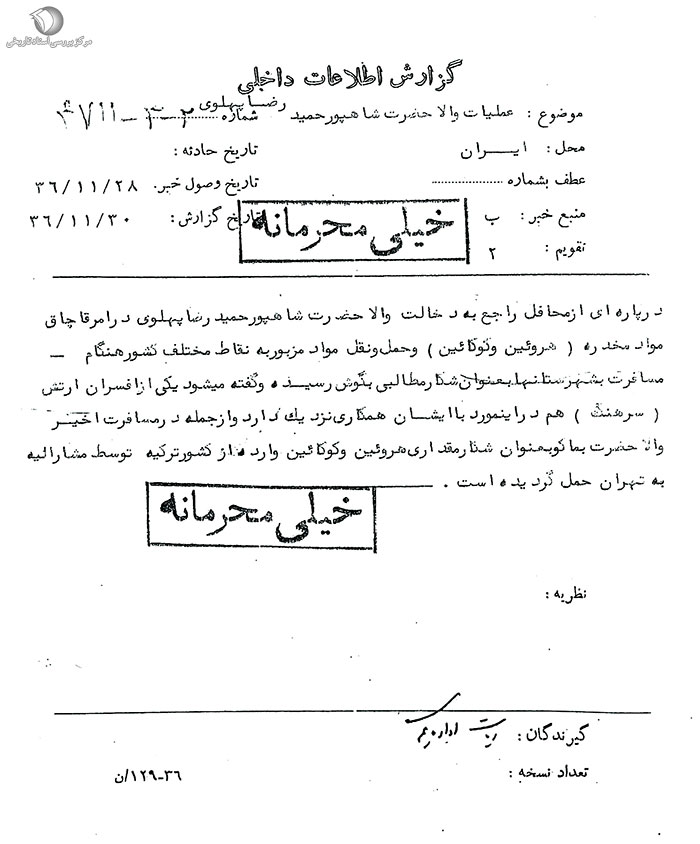 مرکز بررسی اسناد تاریخی
گزارش اطلاعات داخلی
موضوع : عملیات والا حضرت شاهپور حمید رضا پهلوی
شماره
محل : ایــــران
تاریخ حادثه :
عطف بشماره ........................
تاریخ وصول خبر. ۳۶/۱۱/۲۸
منبع خبر : ب
تاریخ گزارش : ۳۶/۱۱/۳۰
تقویم : ۲
خیلی محرمانه
در پاره ای از محافل راجع به دخالت والا حضرت شاهپور حمید رضا پهلوی در امر قاچاق
مواد مخدره ( هروئین وکوکائین ) وحمل ونقل مواد مزبور به نقاط مختلف کشور هنگام —
مسافرت بشهرستانها بعنوان شکار مطالبی بگوش رسیده وگفته میشود یکی از افسران ارتش
( سرهنگ ) هم در اینمورد با ایشان همکاری نزدیك دارد واز جمله در مسافرت اخیــر
والا حضرت بماکو بعنوان شکار مقداری هروئین وکوکائین وارده از کشور ترکیه توسط مشارالیه
به تهران حمل گردیده است .
خیلی محرمانه
نظریه :
گیرندگان : ریاست اداره
تعداد نسخه :
۳۶-۱۲۹/ن